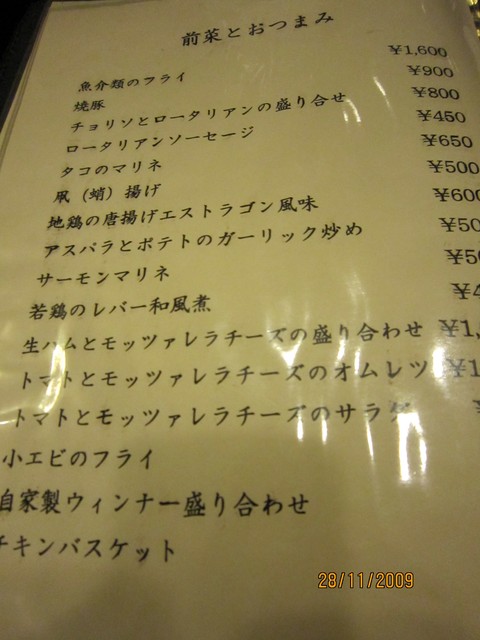 前菜とおつまみ
魚介類のフライ ¥1,600
焼豚 ¥900
チョリソとロータリアンの盛り合せ ¥800
ロータリアンソーセージ ¥450
タコのマリネ ¥650
凧（蛸）揚げ ¥500
地鶏の唐揚げエストラゴン風味 ¥600
アスパラとポテトのガーリック炒め ¥50
サーモンマリネ ¥5
若鶏のレバー和風煮 ¥4
生ハムとモッツァレラチーズの盛り合わせ ¥1,
トマトとモッツァレラチーズのオムレツ ¥1
トマトとモッツァレラチーズのサラダ ¥
小エビのフライ
自家製ウィンナー盛り合わせ
チキンバスケット
28/11/2009